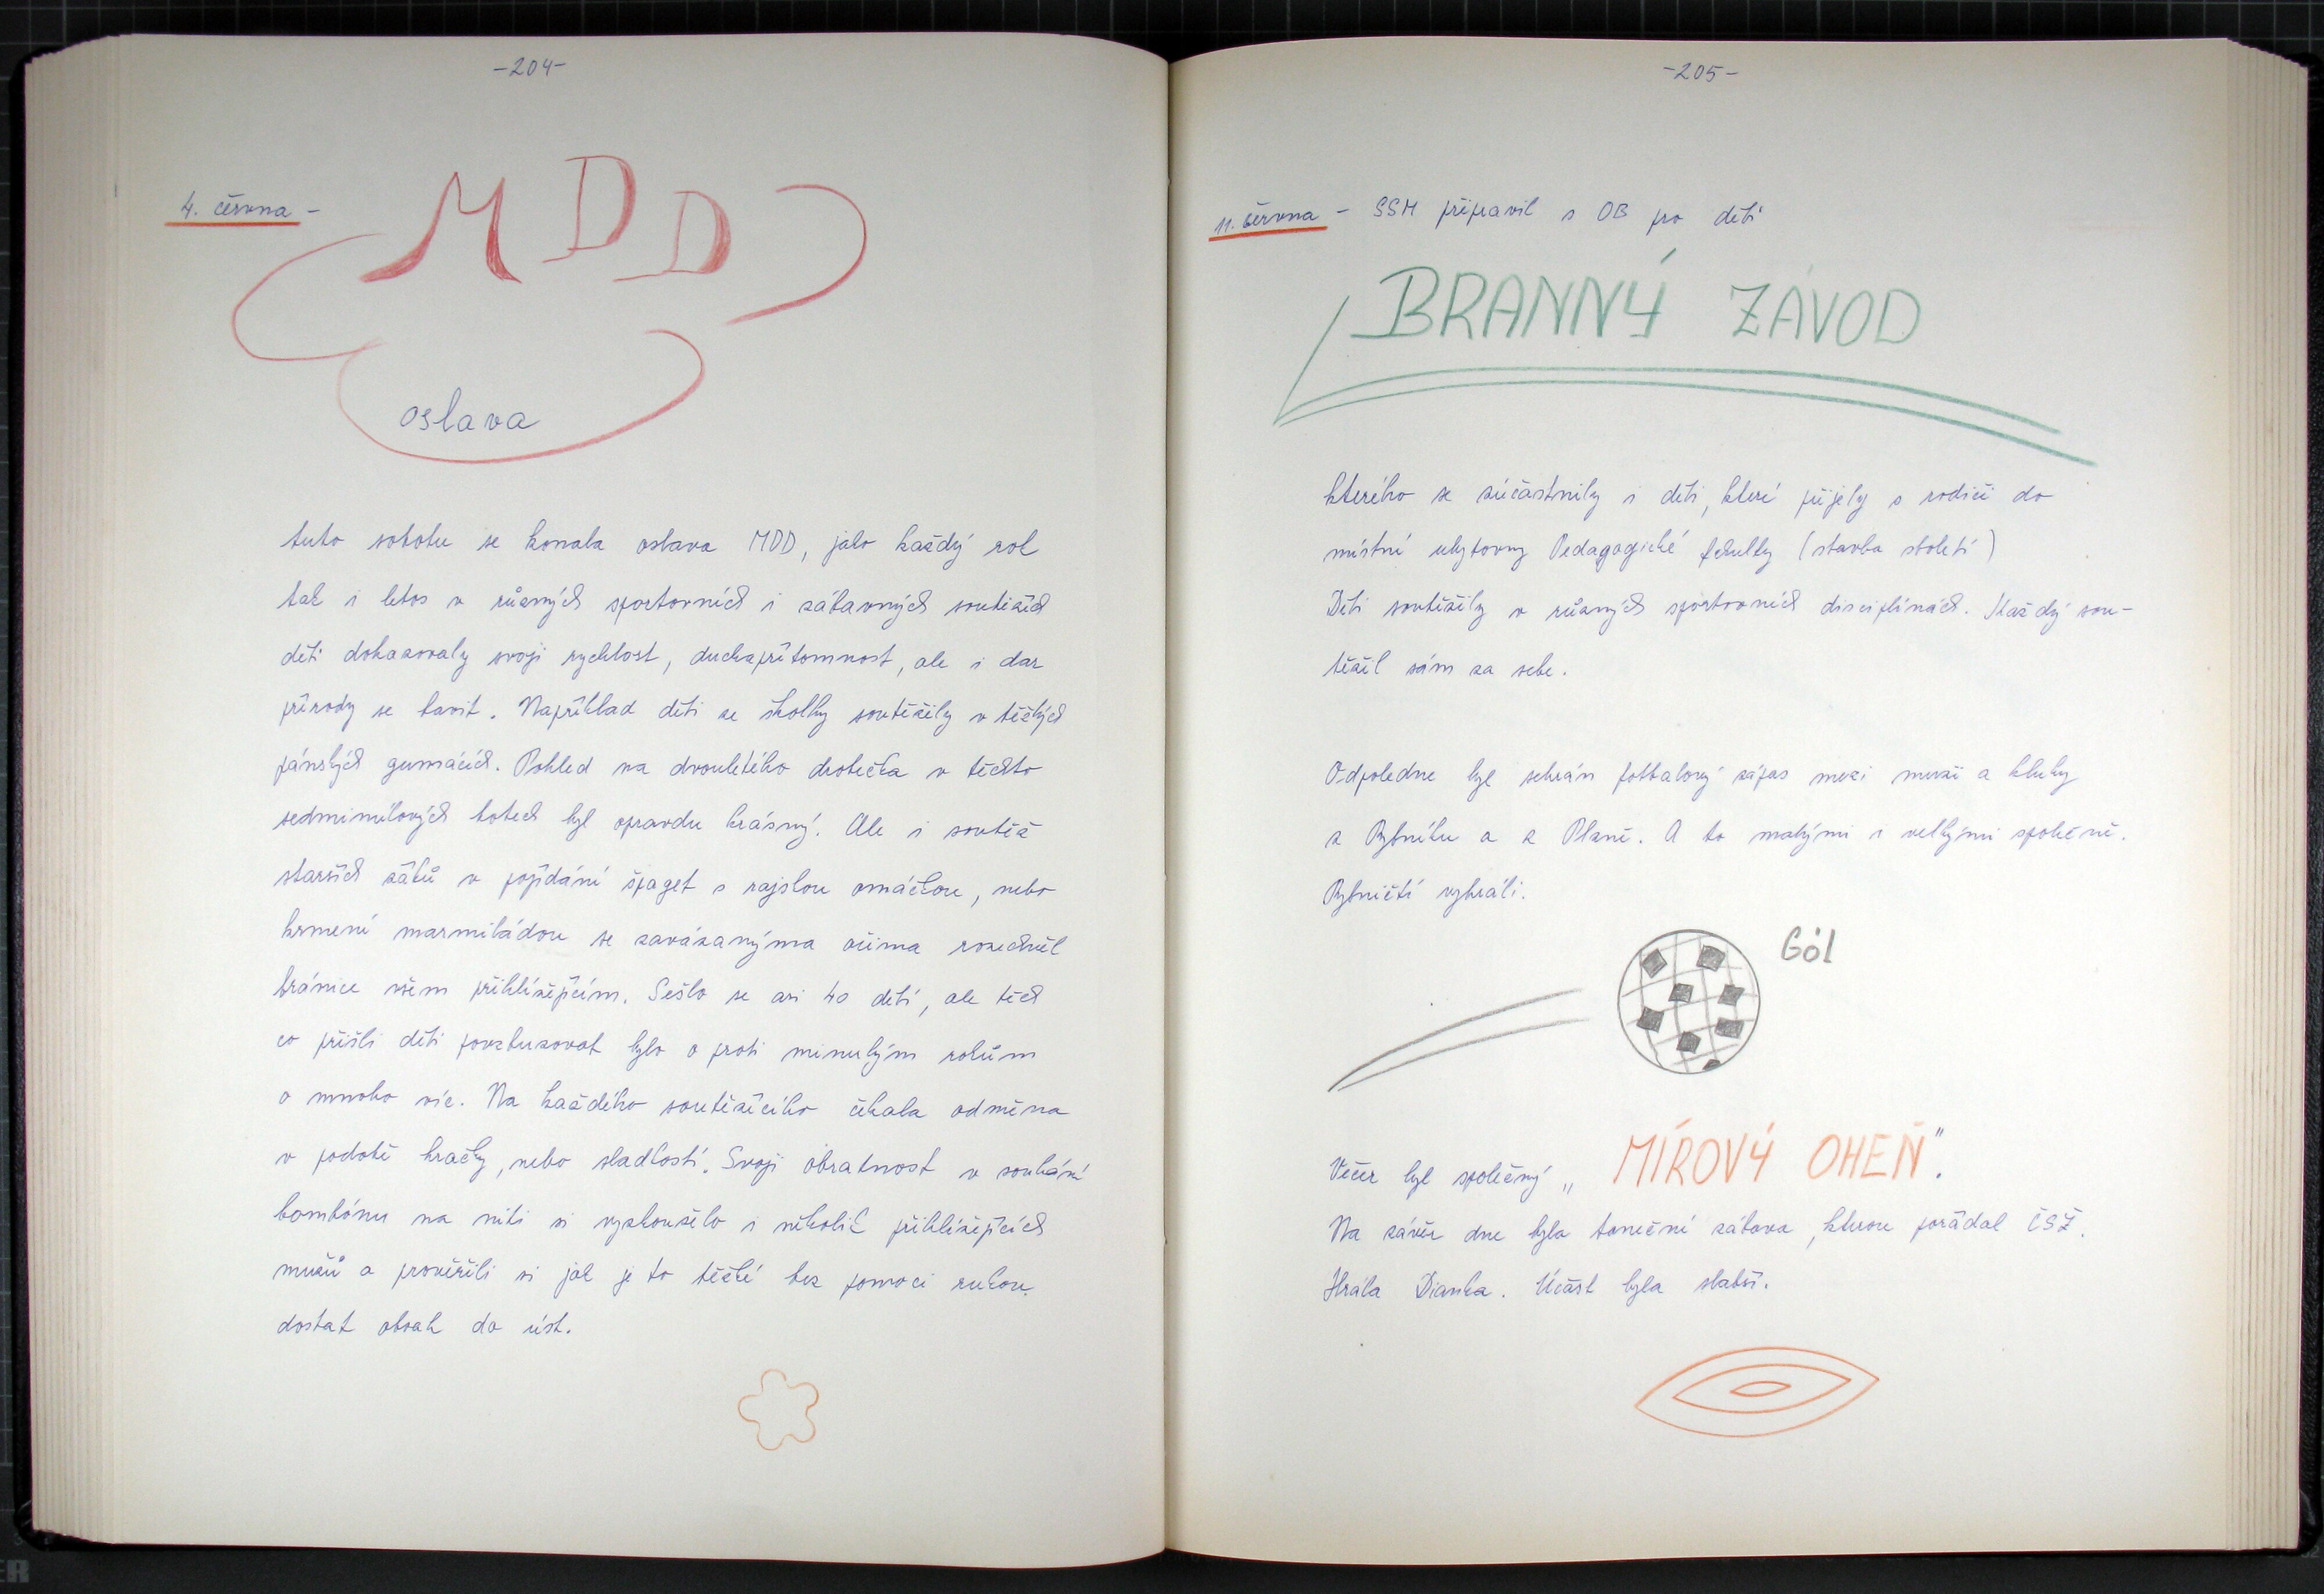 -204-
4. června -
MDD
oslava
tuto sobotu se konala oslava MDD, jako každý rok
tak i letos v různých sportovních i zábavných soutěžích
děti dokazovaly svoji rychlost, duchapřítomnost, ale i dar
přírody se bavit. Například děti ze školky soutěžily v těžkých
pánských gumácích. Pohled na dvouletého drobečka v těchto
sedmimílových botech byl opravdu krásný. Ale i soutěž
starších žáků v pojídání špaget s rajskou omáčkou, nebo
krmení marmeládou se zavázanýma očima rozechvěl
bránice všem přihlížejícím. Sešlo se asi 40 dětí, ale těch
co přišli děti povzbuzovat bylo o proti minulým rokům
o mnoho víc. Na každého soutěžícího čekala odměna
v podobě hračky, nebo sladkostí. Svoji obratnost v soukání
bombónu na niti si vyzkoušelo i několik přihlížejících
mužů a prověřili si jak je to těžké bez pomoci rukou
dostat obsah do úst.
-205-
11. června - SSM připravil s OB pro děti
BRANNÝ ZÁVOD
kterého se zúčastnily i děti, které přijely s rodiči do
místní ubytovny Pedagogické fakulty (stavba století)
Děti soutěžily v různých sportovních disciplínách. Každý sou-
těžil sám za sebe.
Odpoledne byl sehrán fotbalový zápas mezi muži a kluky
z Rybníku a z Plzně. A to malými i velkými společně.
Rybničtí vyhráli.
Gól
Večer byl společný „MÍROVÝ OHEŇ".
Na závěr dne byla taneční zábava, kterou pořádal ČSŽ.
Hrála Dianka. Účast byla slabší.